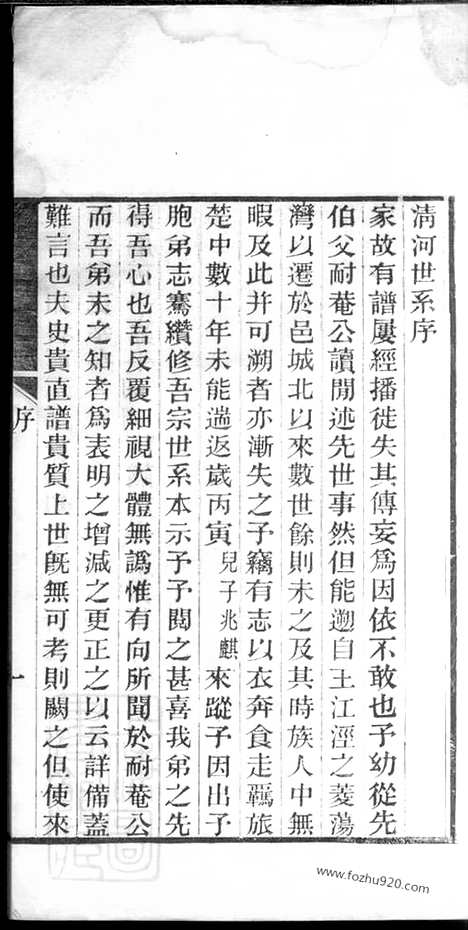 清河世系序
家故有譜屢經播徙失其傳妄為因依不敢也予幼從先
伯父耐菴公讀閒述先世事然但能遡自王江涇之菱蕩
灣以遷於邑城北以來數世餘則未之及其時族人中無
暇及此并可溯者亦漸失之予竊有志以衣奔食走羈旅
楚中數十年未能遄返歲丙寅兒子兆麒來蹤予因出予
胞弟志騫纘修吾宗世系本示予予閱之甚喜我弟之先
得吾心也吾反覆細視大體無譌惟有向所聞於耐菴公
而吾弟未之知者為表明之增減之更正之以云詳備蓋
難言也夫史貴直譜貴質上世旣無可考則闕之但使來
序
一
www.fozhu920.com